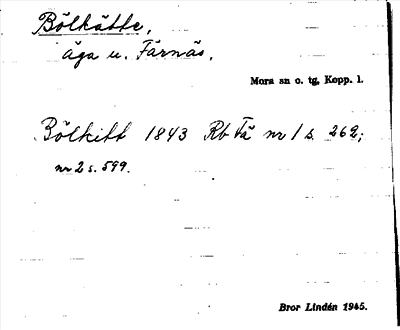 Bölkätte,
äga u. Färnäs.
Mora sn o. tg, Kopp. l.
Bölkitt 1843 Rb Fä nr 1 s. 262;
nr 2 s. 599.
Bror Lindén 1945.